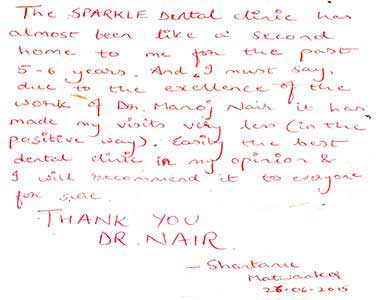 The SPARKLE Dental clinic has
almost been like a second
home to me for the past
5-6 years. And, I must say,
due to the exellence of the
work of Dr. Manoj Nair it has
made my visits very less (in the
positive way). Easily the best
dental clinic in my opinion &
I will recommend it to everyone
for sure.
THANK YOU
DR. NAIR.
- Shantanu
Matwankar
26-06-2015